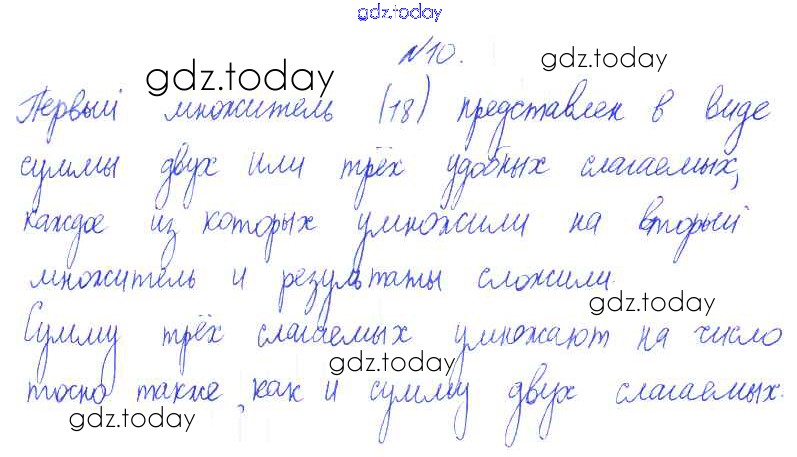 gdz.today
№10.
gdz.today
gdz.today
Первый множитель (18) представлен в виде
суммы двух или трёх удобных слагаемых,
каждое из которых умножили на второй
множитель и результаты сложили.
gdz.today
Сумму трёх слагаемых умножают на число
gdz.today
точно также, как и сумму двух слагаемых.
gdz.today